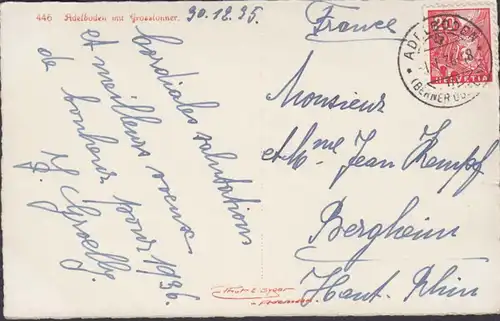 446 Adelboden mit Grosslohner.
30.12.35.
Cordiales salutations
et meilleurs voeux
de bonheur pour 1936.
France
Monsieur
et Mme Jean Kempf
Bergheim
Haut-Rhin
20
HELVETIA
ADELBODEN
(BERNER OB